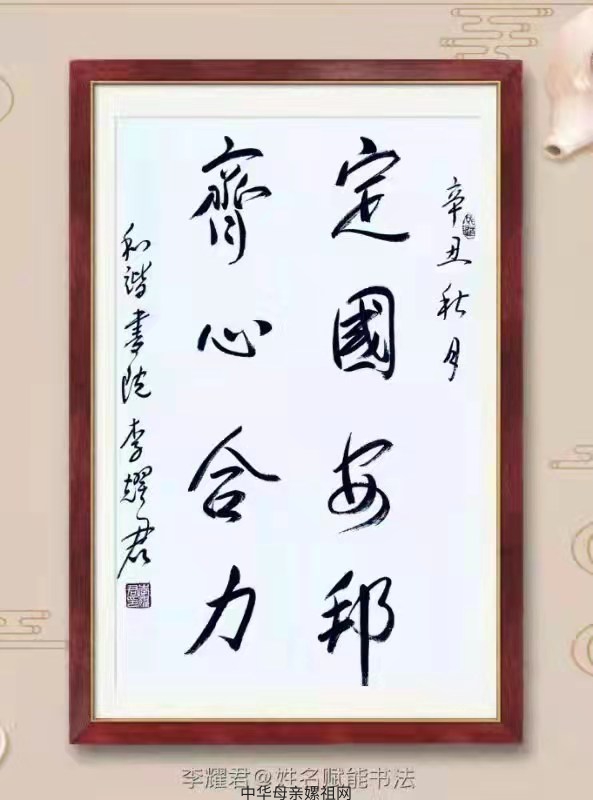 辛丑秋月
定國安邦
齊心合力
和谐書院李耀君
李耀君@姓名赋能书法
中华母亲嫘祖网